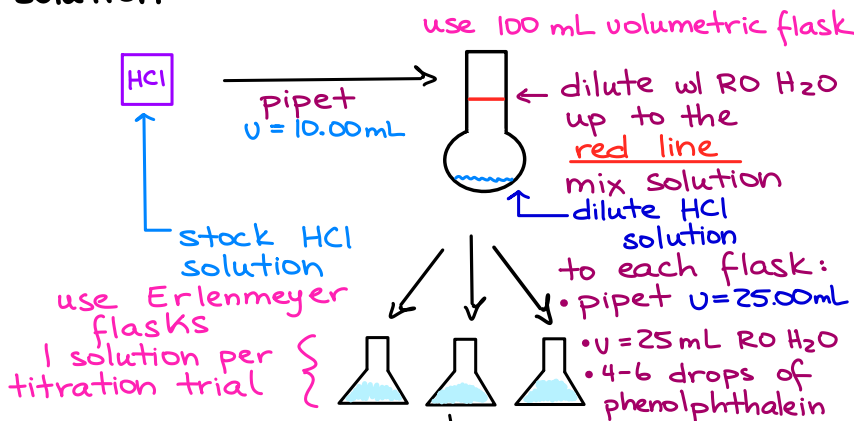 solution
use 100 mL volumetric flask
HCl
pipet
v = 10.00mL
dilute w/ RO H₂O
up to the
red line
mix solution
dilute HCl
solution
stock HCl
solution
use Erlenmeyer
flasks
1 solution per
titration trial
to each flask:
• pipet v = 25.00mL
• v = 25 mL RO H₂O
• 4-6 drops of
phenolphthalein